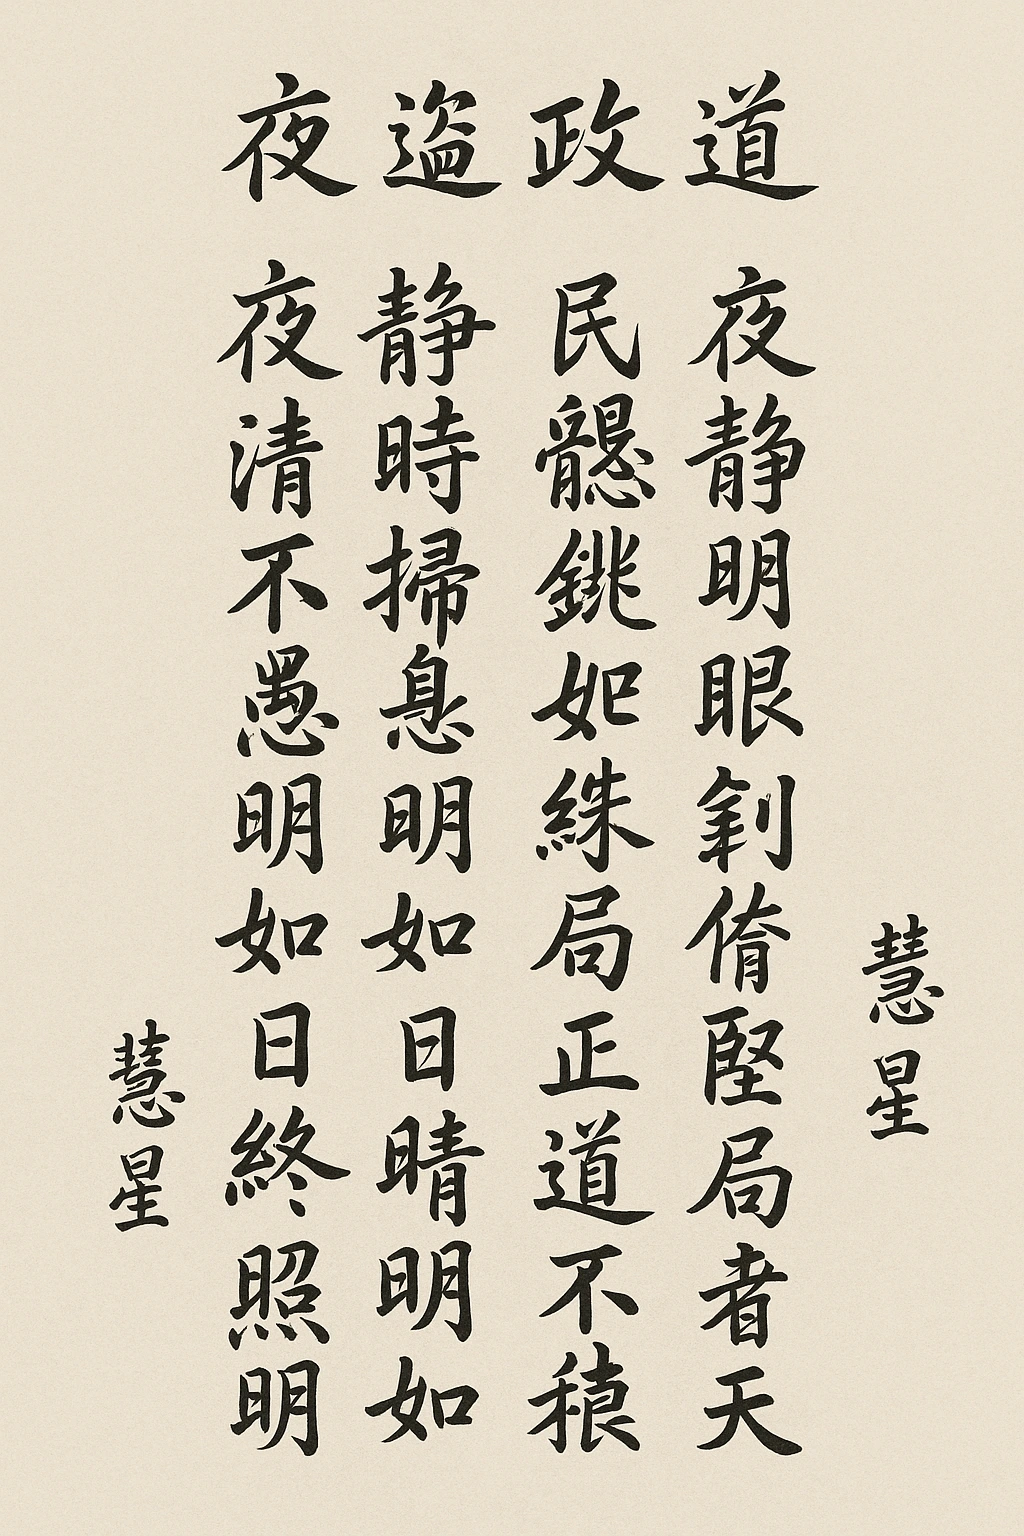 道政夜
慧星
夜静明眼釗堅局者天
民銚如絑局正道不
静時掃息明如日晴明如
夜清不明如日終照明
慧星